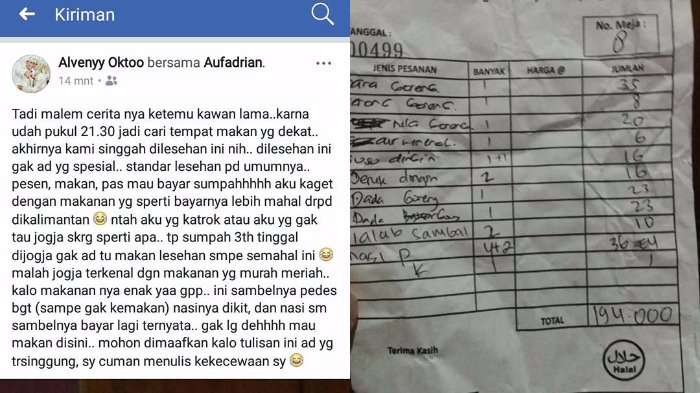 Kiriman
Alvenyy Oktoo bersama Aufadrian.
14 mnt
Tadi malem cerita nya ketemu kawan lama..karna
udah pukul 21.30 jadi cari tempat makan yg dekat..
akhirnya kami singgah dilesehan ini nih.. dilesehan ini
gak ad yg spesial.. standar lesehan pd umumnya..
pesen, makan, pas mau bayar sumpahhhhh aku kaget
dengan makanan yg sperti bayarnya lebih mahal drpd
dikalimantan 😂 ntah aku yg katrok atau aku yg gak
tau jogja skrg sperti apa.. tp sumpah 3th tinggal
dijogja gak ad tu makan lesehan smpe semahal ini 😂
malah jogja terkenal dgn makanan yg murah meriah..
kalo makanan nya enak yaa gpp.. ini sambelnya pedes
bgt (sampe gak kemakan) nasinya dikit, dan nasi sm
sambelnya bayar lagi ternyata.. gak lg dehhhh mau
makan disini.. mohon dimaafkan kalo tulisan ini ad yg
trsinggung, sy cuman menulis kekecewaan sy 😂
ANGGAL:
00499
No. Meja:
8
JENIS PESANAN BANYAK HARGA @ JUMLAH
Goreng 1 35
Goreng 1 8
Nila Goreng 1 20
1 6
dingin 1+1 16
Jeruk dingin 2 16
Dada Goreng 1 23
Dada 1 23
lalab Sambal 2 10
nasi P 4+2 36
K 1 1
TOTAL 194.000
Terima Kasih
حلال
Halal